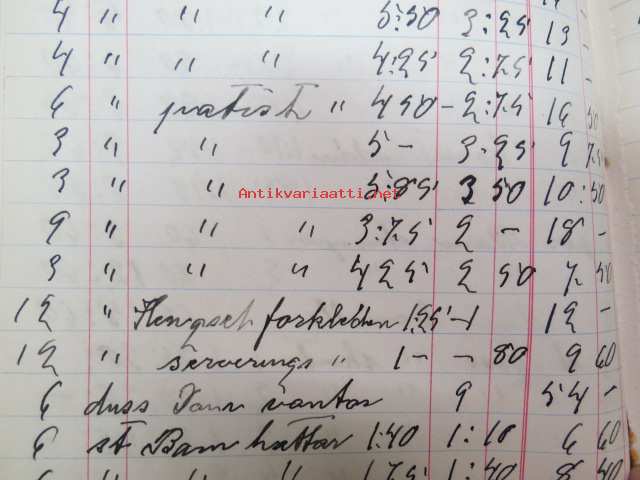 4 " " " 5:50 3:25 13
4 " " " 4:25 2:75 11 -
6 " " 4 50 - 2:75 16 50
3 " " 5 - 3:25 9 75
3 " " 5:85 3 50 10:50
Antikvariaatti.net
9 " " " 3:75 2 - 18 -
3 " " " 4 25 2 50 7 50
12 " förkläden 1:25 - 1 12 -
12 " serverings " 1 - - 80 9 60
6 duss Dam vantar 9 54 -
6 st Barn hattar 1:40 1:10 6 60
6 " " " 1 75 1:40 8 40